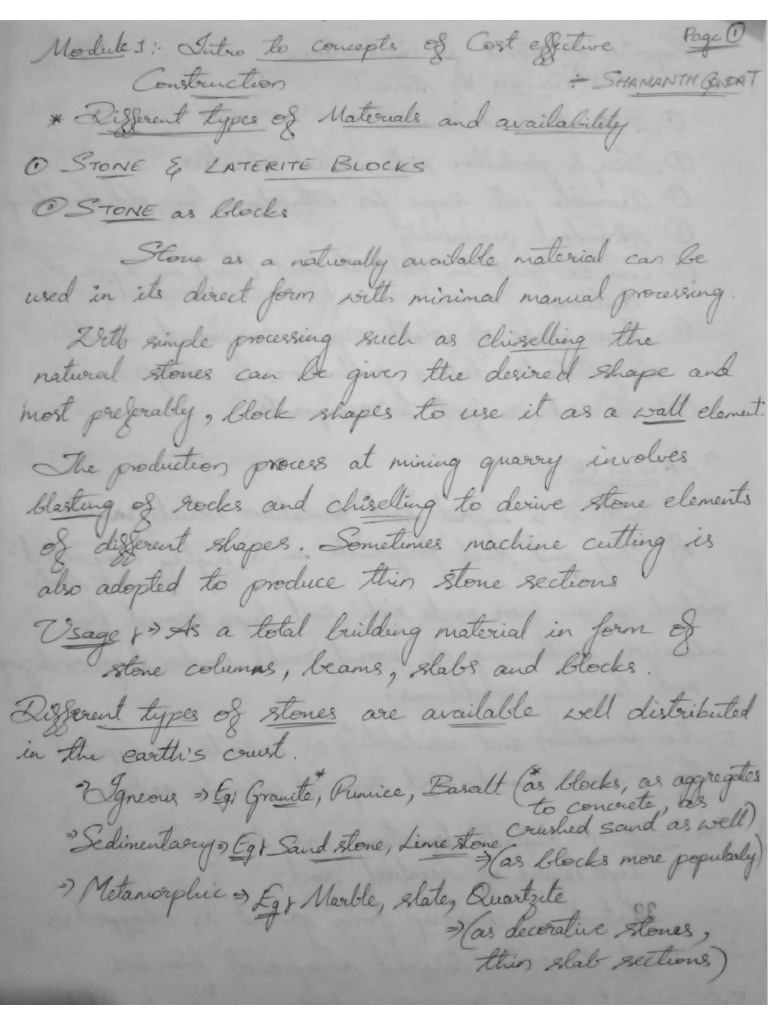 Page ①
Module 1:- Intro to concepts of Cost effective
Construction
÷ SHAMANTH GOWDA T
* Different types of Materials and availability
① STONE & LATERITE BLOCKS
STONE as blocks
Stone as a naturally available material can be
used in its direct form with minimal manual processing.
With simple processing such as chiselling the
natural stones can be given the desired shape and
most preferably, block shapes to use it as a wall element.
The production process at mining quarry involves
blasting of rocks and chiselling to derive stone elements
of different shapes. Sometimes machine cutting is
also adopted to produce thin stone sections
Usage :⇒ As a total building material in form of
stone columns, beams, slabs and blocks.
Different types of stones are available well distributed
in the earth's crust.
⇒ Igneous ⇒ Eg: Granite*, Pumice, Basalt (*as blocks, as aggregates
to concrete, as
crushed sand as well)
⇒ Sedimentary ⇒ Eg: Sand stone, Lime stone
⇒ (as blocks more popularly)
⇒ Metamorphic ⇒ Eg: Marble, slate, Quartzite
⇒ (as decorative stones,
thin slab sections)